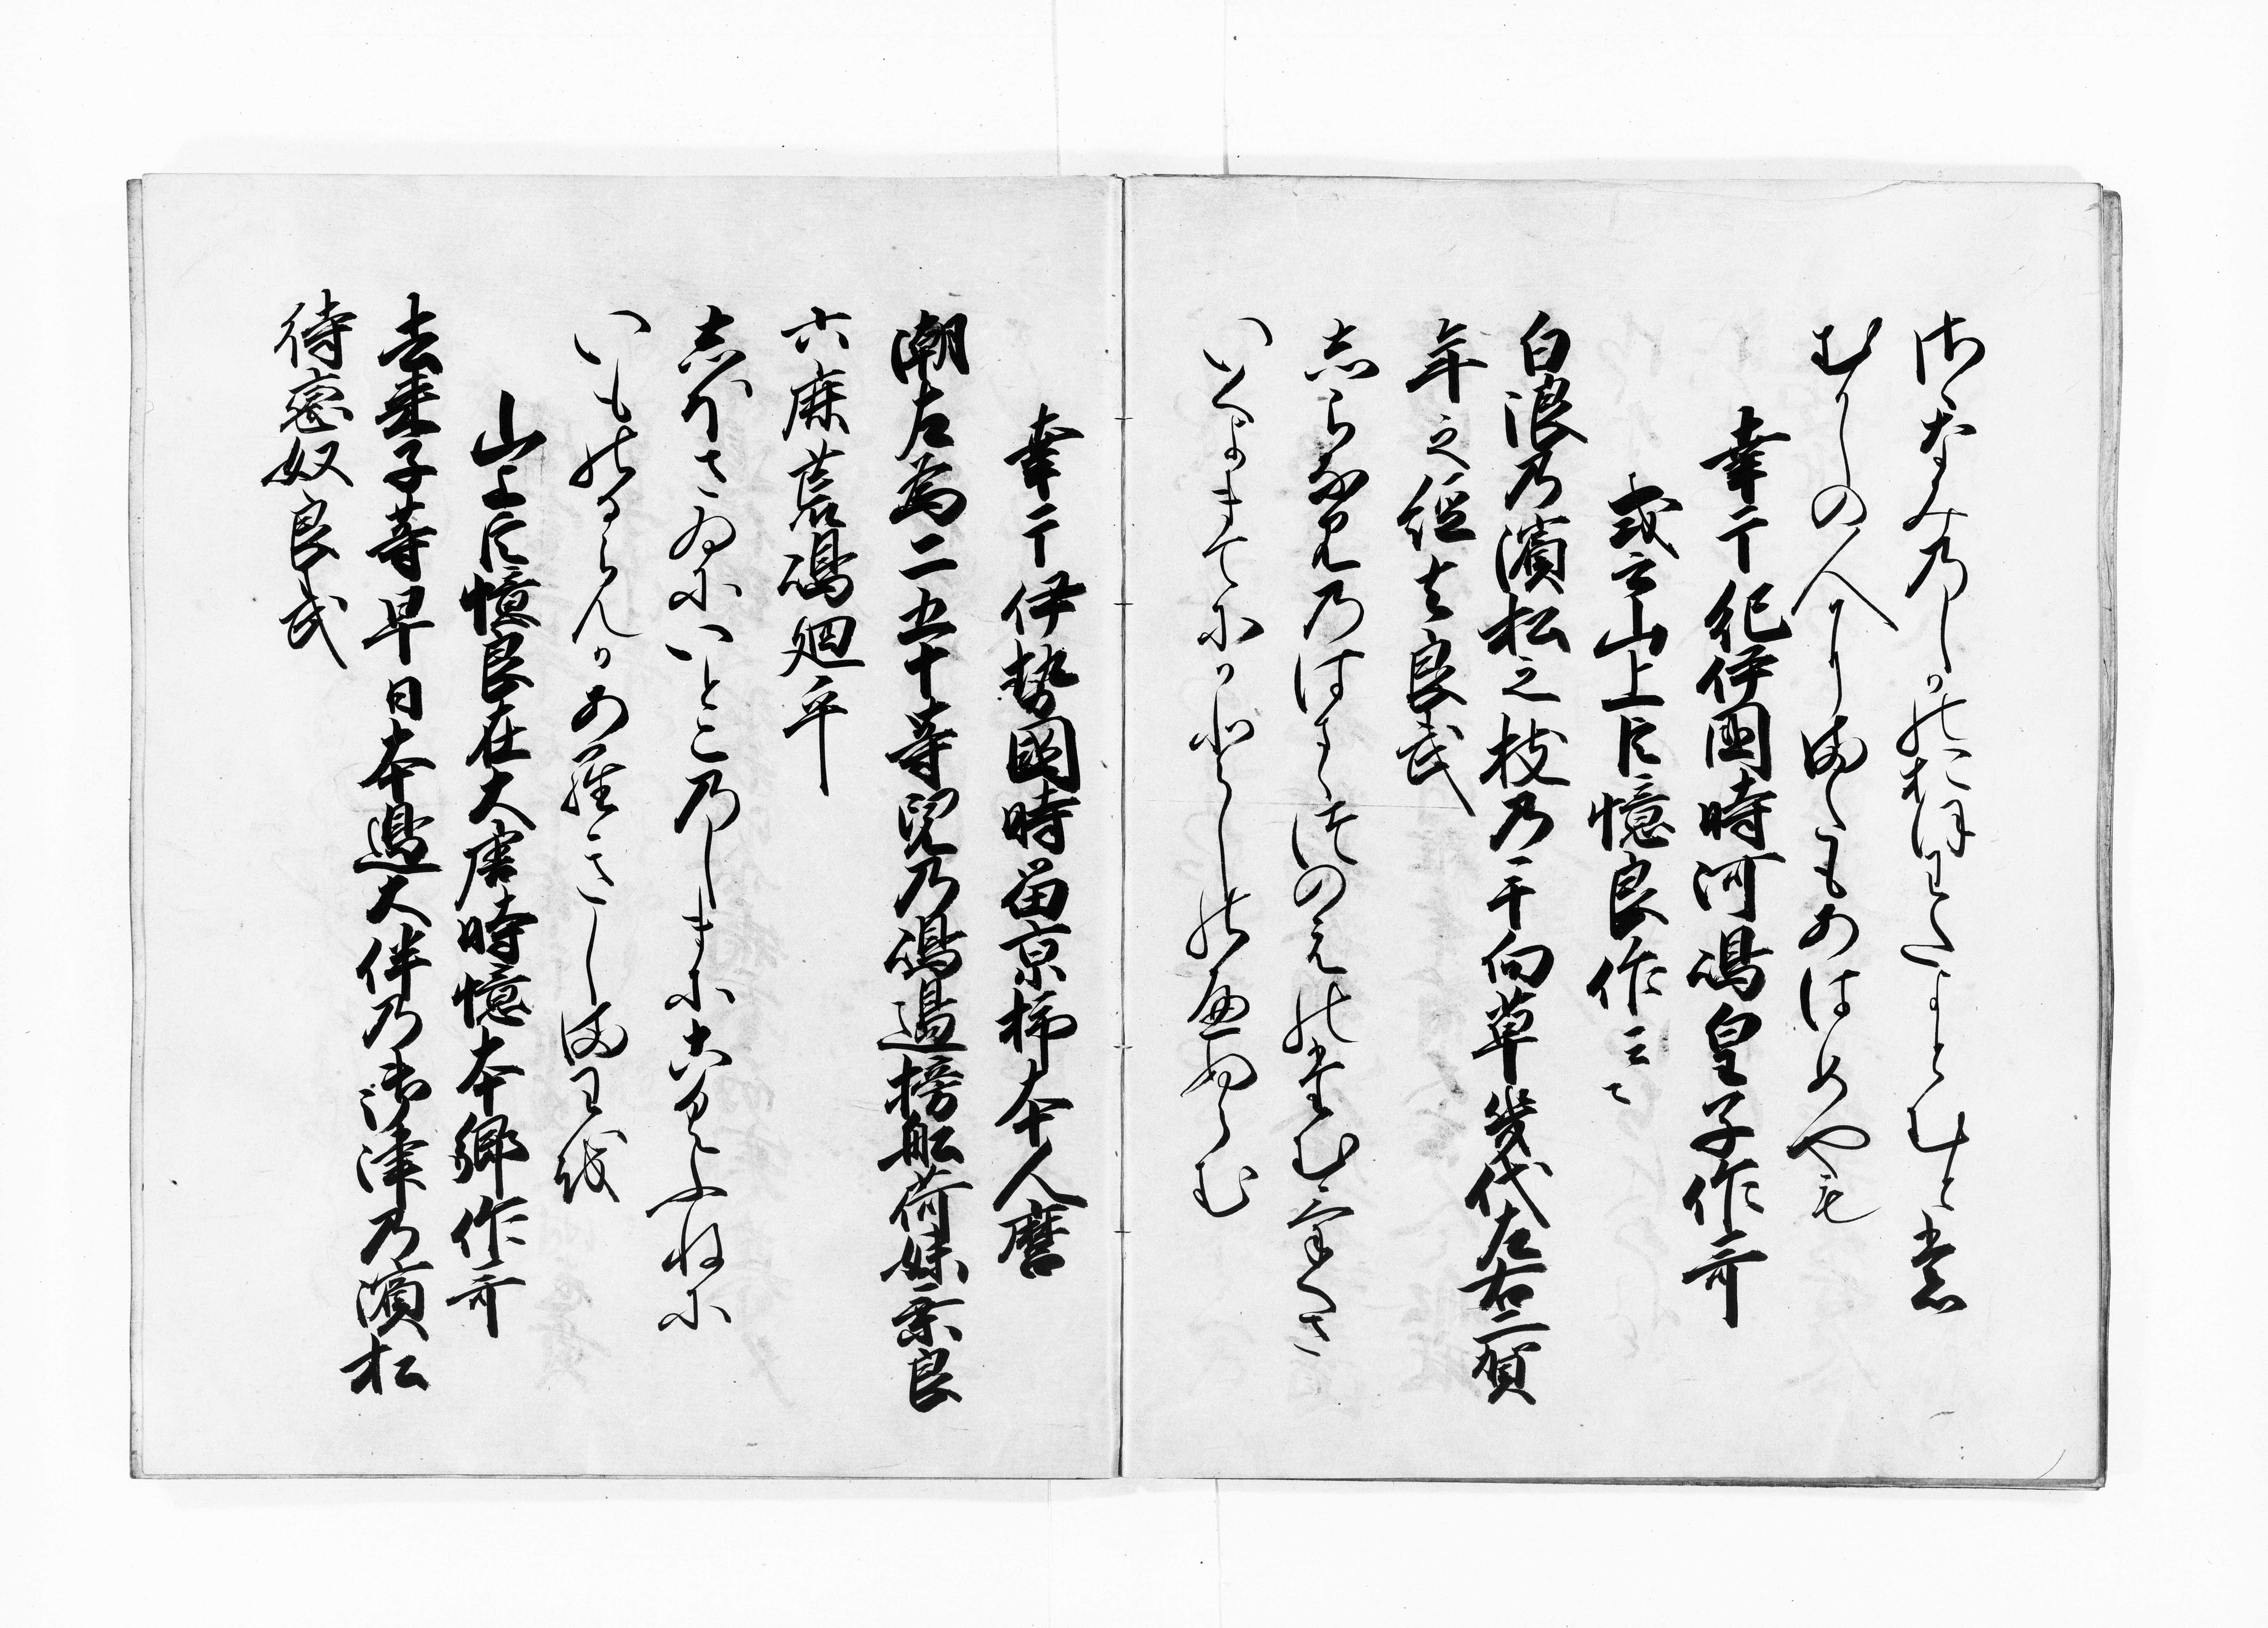 さゝなみのしかのおほわたよとむとも
むかしの人にまたもあはめやも
幸于紀伊國時河嶋皇子作哥
或云山上臣憶良作云々
白浪乃濱松之枝乃手向草幾代左右二賀
年之經去良武
志らなみのはまゝつのえのたむくさ
いくよまてにかとしのへぬらむ
幸于伊勢國時留京柿本人麿
潮左為二五十等兒乃嶋邊榜舩荷妹乗良
六麻荒嶋廻乎
志ほさゐにいとこのしまにこくふねに
いものるらんかあらきしまわを
山上臣憶良在大唐時憶本郷作哥
去来子等早日本邊大伴乃御津乃濱松
待戀奴良武